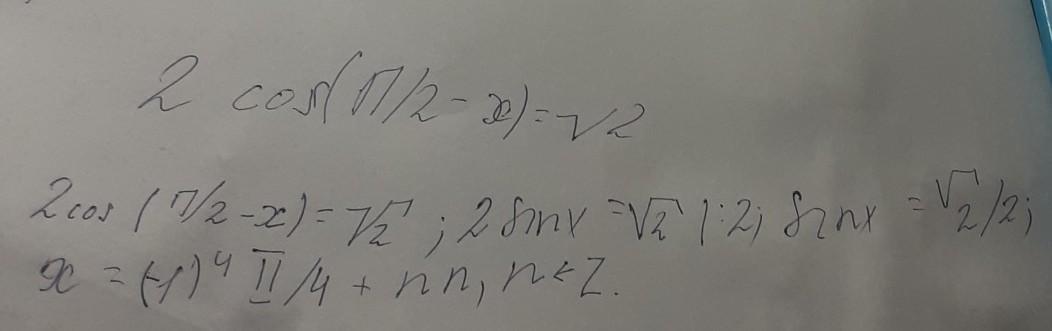 2 cos(π/2 - x) = √2
2cos (π/2 - x) = √2 ; 2 sin x = √2 | :2; sin x = √2/2;
x = (-1)ⁿ π/4 + πn, n ∈ Z.